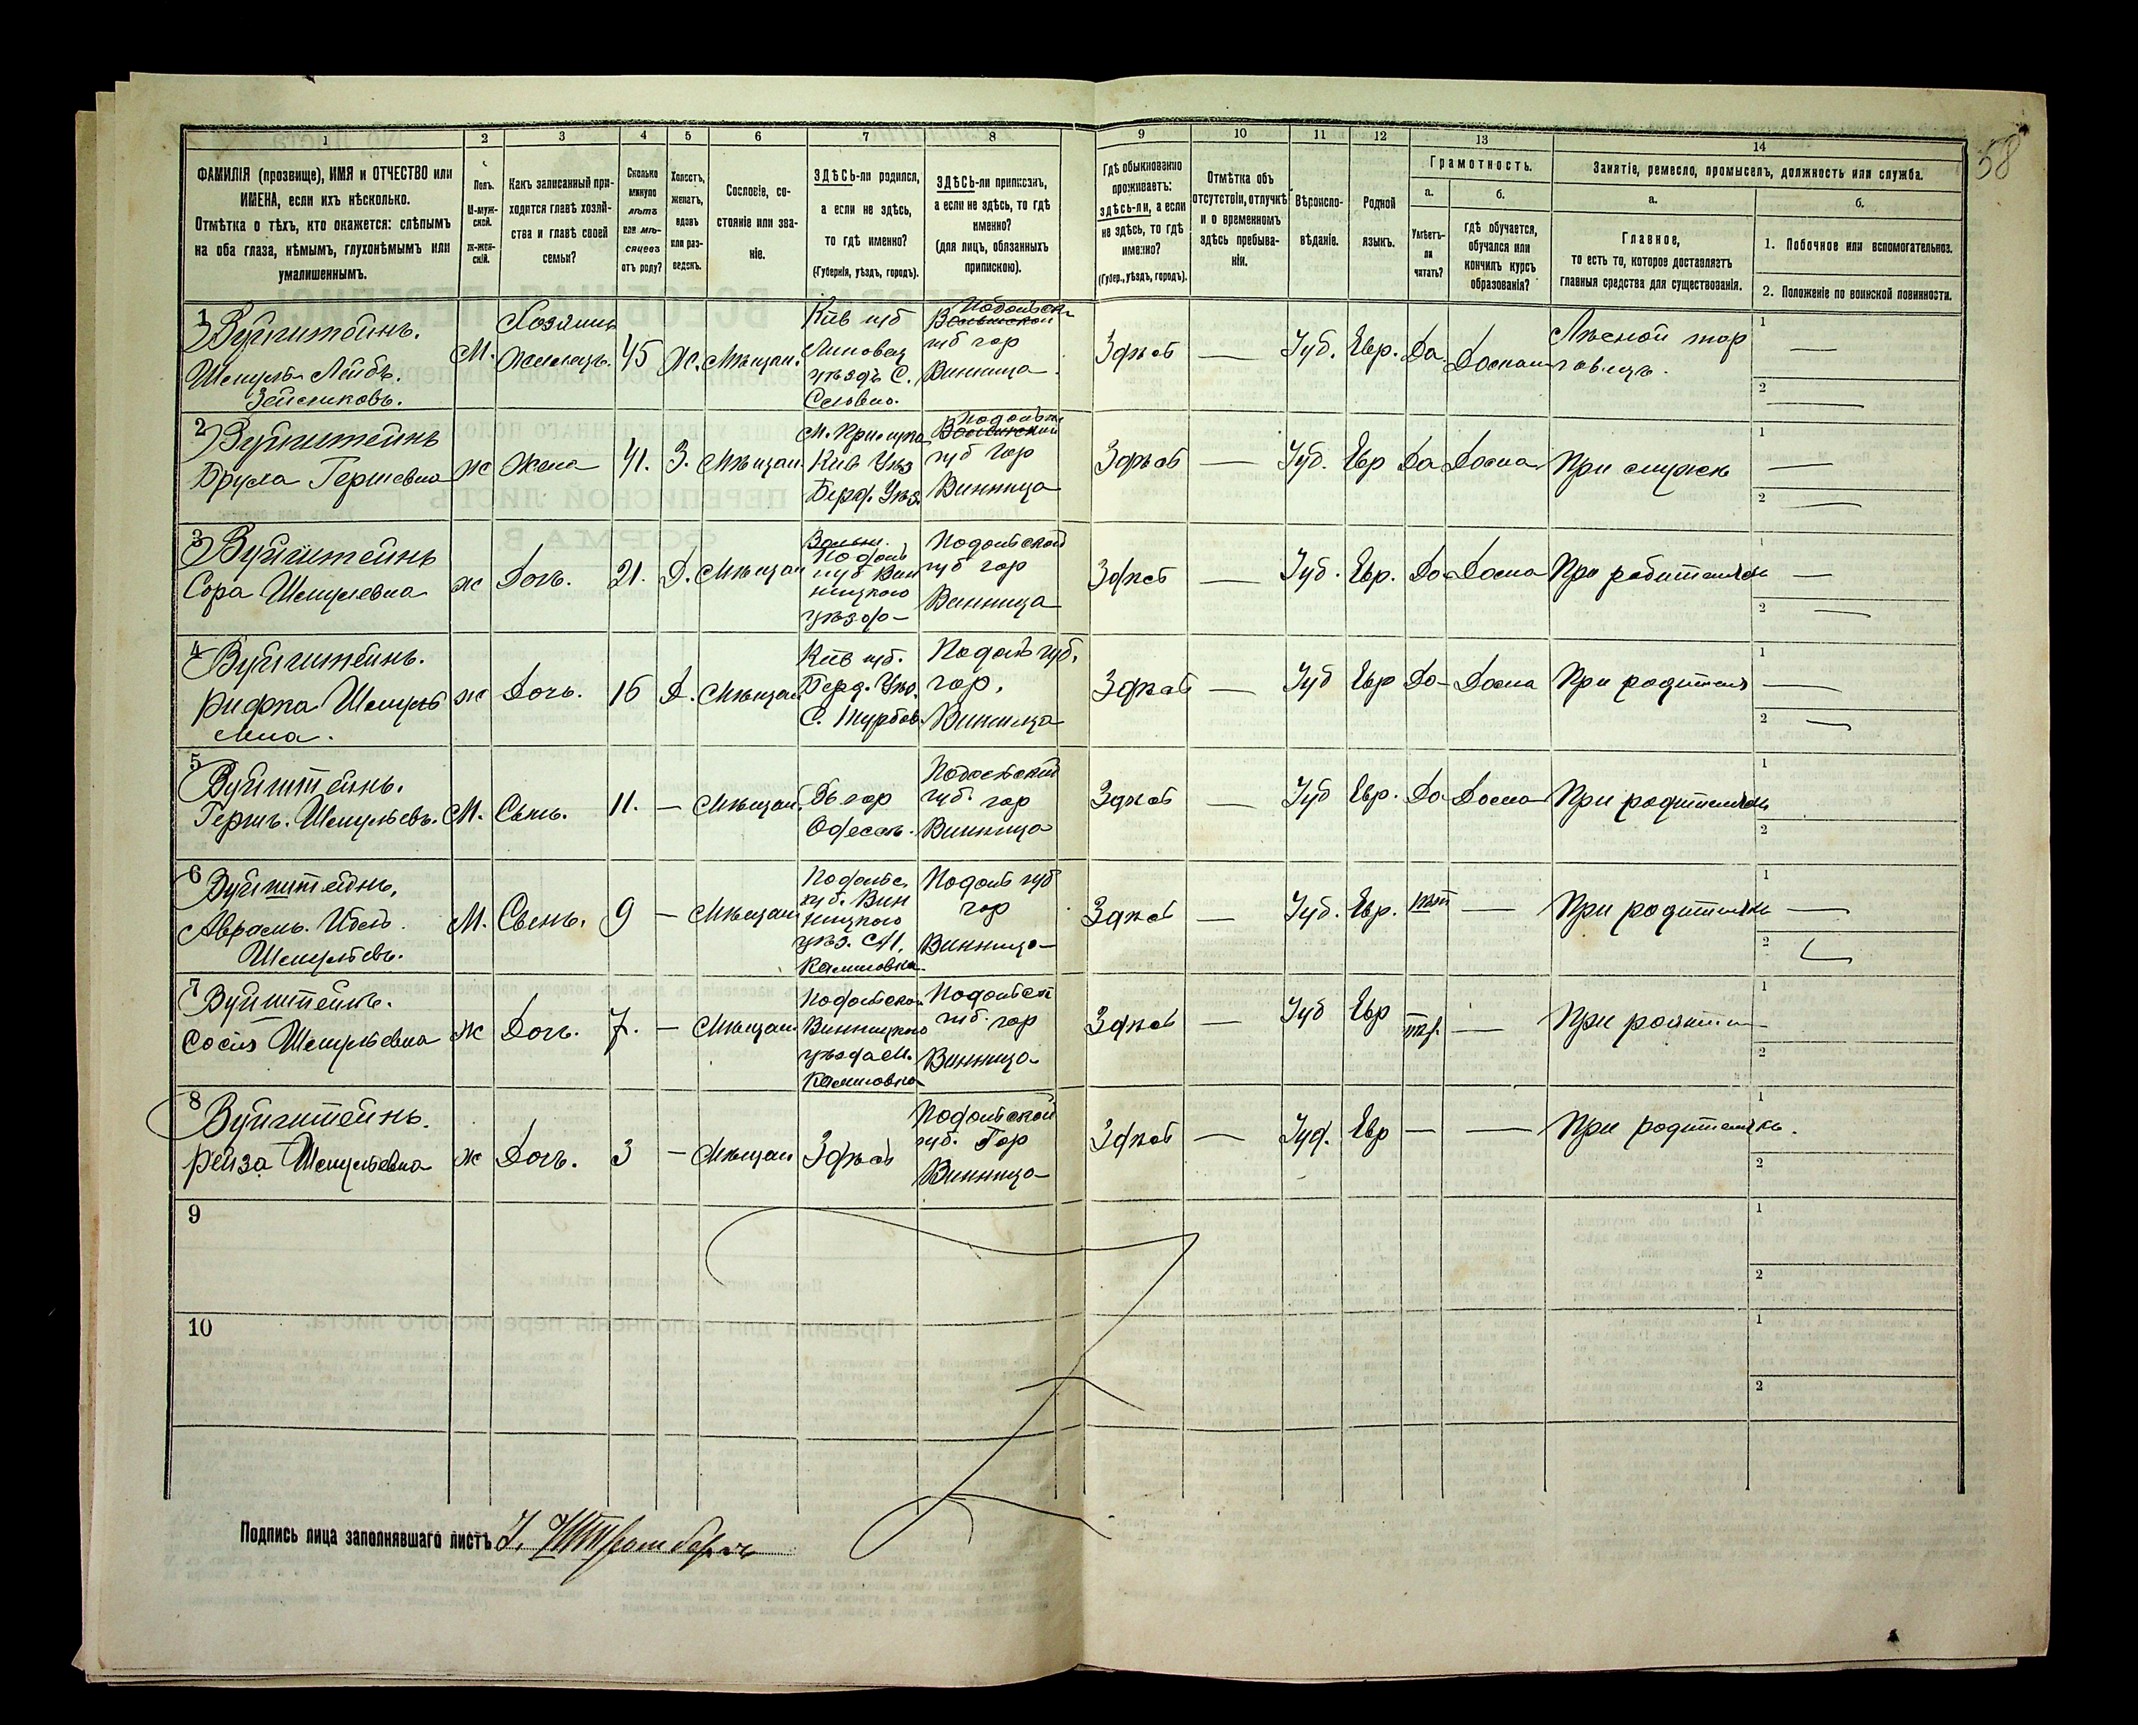 58
1 2 3 4 5 6 7 8 9 10 11 12 13 14
ФАМИЛІЯ (прозвище), ИМЯ и ОТЧЕСТВО или
ИМЕНА, если ихъ нѣсколько.
Отмѣтка о тѣхъ, кто окажется: слѣпымъ
на оба глаза, нѣмымъ, глухонѣмымъ или
умалишеннымъ.
Полъ.
М-муж-
ской.
ж-жен-
скій.
Какъ записанный при-
ходится главѣ хозяй-
ства и главѣ своей
семьи?
Сколько
минуло
лѣтъ
или мѣ-
сяцевъ
отъ роду?
Холостъ,
женатъ,
вдовъ
или раз-
веденъ.
Сословіе, со-
стояніе или зва-
ніе.
ЗДѢСЬ-ли родился,
а если не здѣсь,
то гдѣ именно?
(Губернія, уѣздъ, городъ).
ЗДѢСЬ-ли приписанъ,
а если не здѣсь, то гдѣ
именно?
(для лицъ, обязанныхъ
припискою).
Гдѣ обыкновенно
проживаетъ:
здѣсь-ли, а если
не здѣсь, то гдѣ
именно?
(Губер., уѣздъ, городъ).
Отмѣтка объ
отсутствіи, отлучкѣ
и о временномъ
здѣсь пребыва-
ніи.
Вѣроиспо-
вѣданіе.
Родной
языкъ.
Грамотность.
а.
Умѣетъ-
ли
читать?
б.
гдѣ обучается,
обучался или
кончилъ курсъ
образованія?
Занятіе, ремесло, промыселъ, должность или служба.
а.
Главное,
то есть то, которое доставляетъ
главныя средства для существованія.
б.
1. Побочное или вспомогательное.
2. Положеніе по воинской повинности.
1 Вуйгитейнъ.
Шмуль Лейбъ.
Зейликовъ.
М.
Хозяинъ
45
Ж.
Мѣщан.
Кіев губ
Липовец
уѣздъ С.
Подольск
губ гор
Винница
Здѣсь
—
Іуд.
Евр.
Да.
Лѣсной тор
говецъ.
2 Вуйгитейнъ
Брула Гершевна
ж
Жена
41.
З.
Мѣщан.
М. Прилука
Кіев Уѣз
Берд. Уѣз.
губ гор
Винница
Здѣсь
—
Іуд.
Евр
Да
Дома
При мужѣ
3 Вуйгитейнъ
Сора Шмулевна
ж
Дочь.
21.
Д.
Мѣщан
Подоль
губ Вин
ницкого
уѣзд
Подольской
губ гор
Винница
Здѣсь
—
Іуд.
Евр.
Да
Дома
При родителяхъ
4 Вуйгитейнъ.
Ривка Шмуль
евна.
ж
Дочь.
16
Д.
Мѣщан
Кіев губ.
Берд. Уѣз.
С. Турбов
Подоль губ.
гор.
Винница
Здѣсь
—
Іуд
Евр
Да
Дома
При родител
5 Вуйгитейнъ.
Гершъ. Шмульевъ.
М.
Сынъ.
11.
—
Мѣщан.
Въ гор
Одессѣ.
Подольской
губ. гор
Винница
Здѣсь
—
Іуд
Евр.
Да
Дома
При родителяхъ
6 Вуйгитейнъ,
Аврамъ. Ибель.
Шмульевъ.
М.
Сынъ.
9
—
Мѣщан
Подольс.
губ. Вин
ницкого
уѣз. М.
Калиновка
Подоль губ
гор
Винница
Здѣсь
—
Іуд.
Евр.
нѣт
—
При родителяхъ
7 Вуйгитейнъ.
Сося Шмульевна
ж
Дочь.
7.
—
Мѣщан
Подольской
Винницкого
уѣзда М.
Калиновка
Подольск
губ. гор
Винница
Здѣсь
—
Іуд
Евр
—
8 Вуйгитейнъ.
Рейза Шмульевна
ж
Дочь.
3
—
Мѣщан
Здѣсь
Подольской
губ. Гор
Винница
Здѣсь
—
Іуд.
Евр
—
—
При родителяхъ.
9
10
Подпись лица заполнявшаго листъ